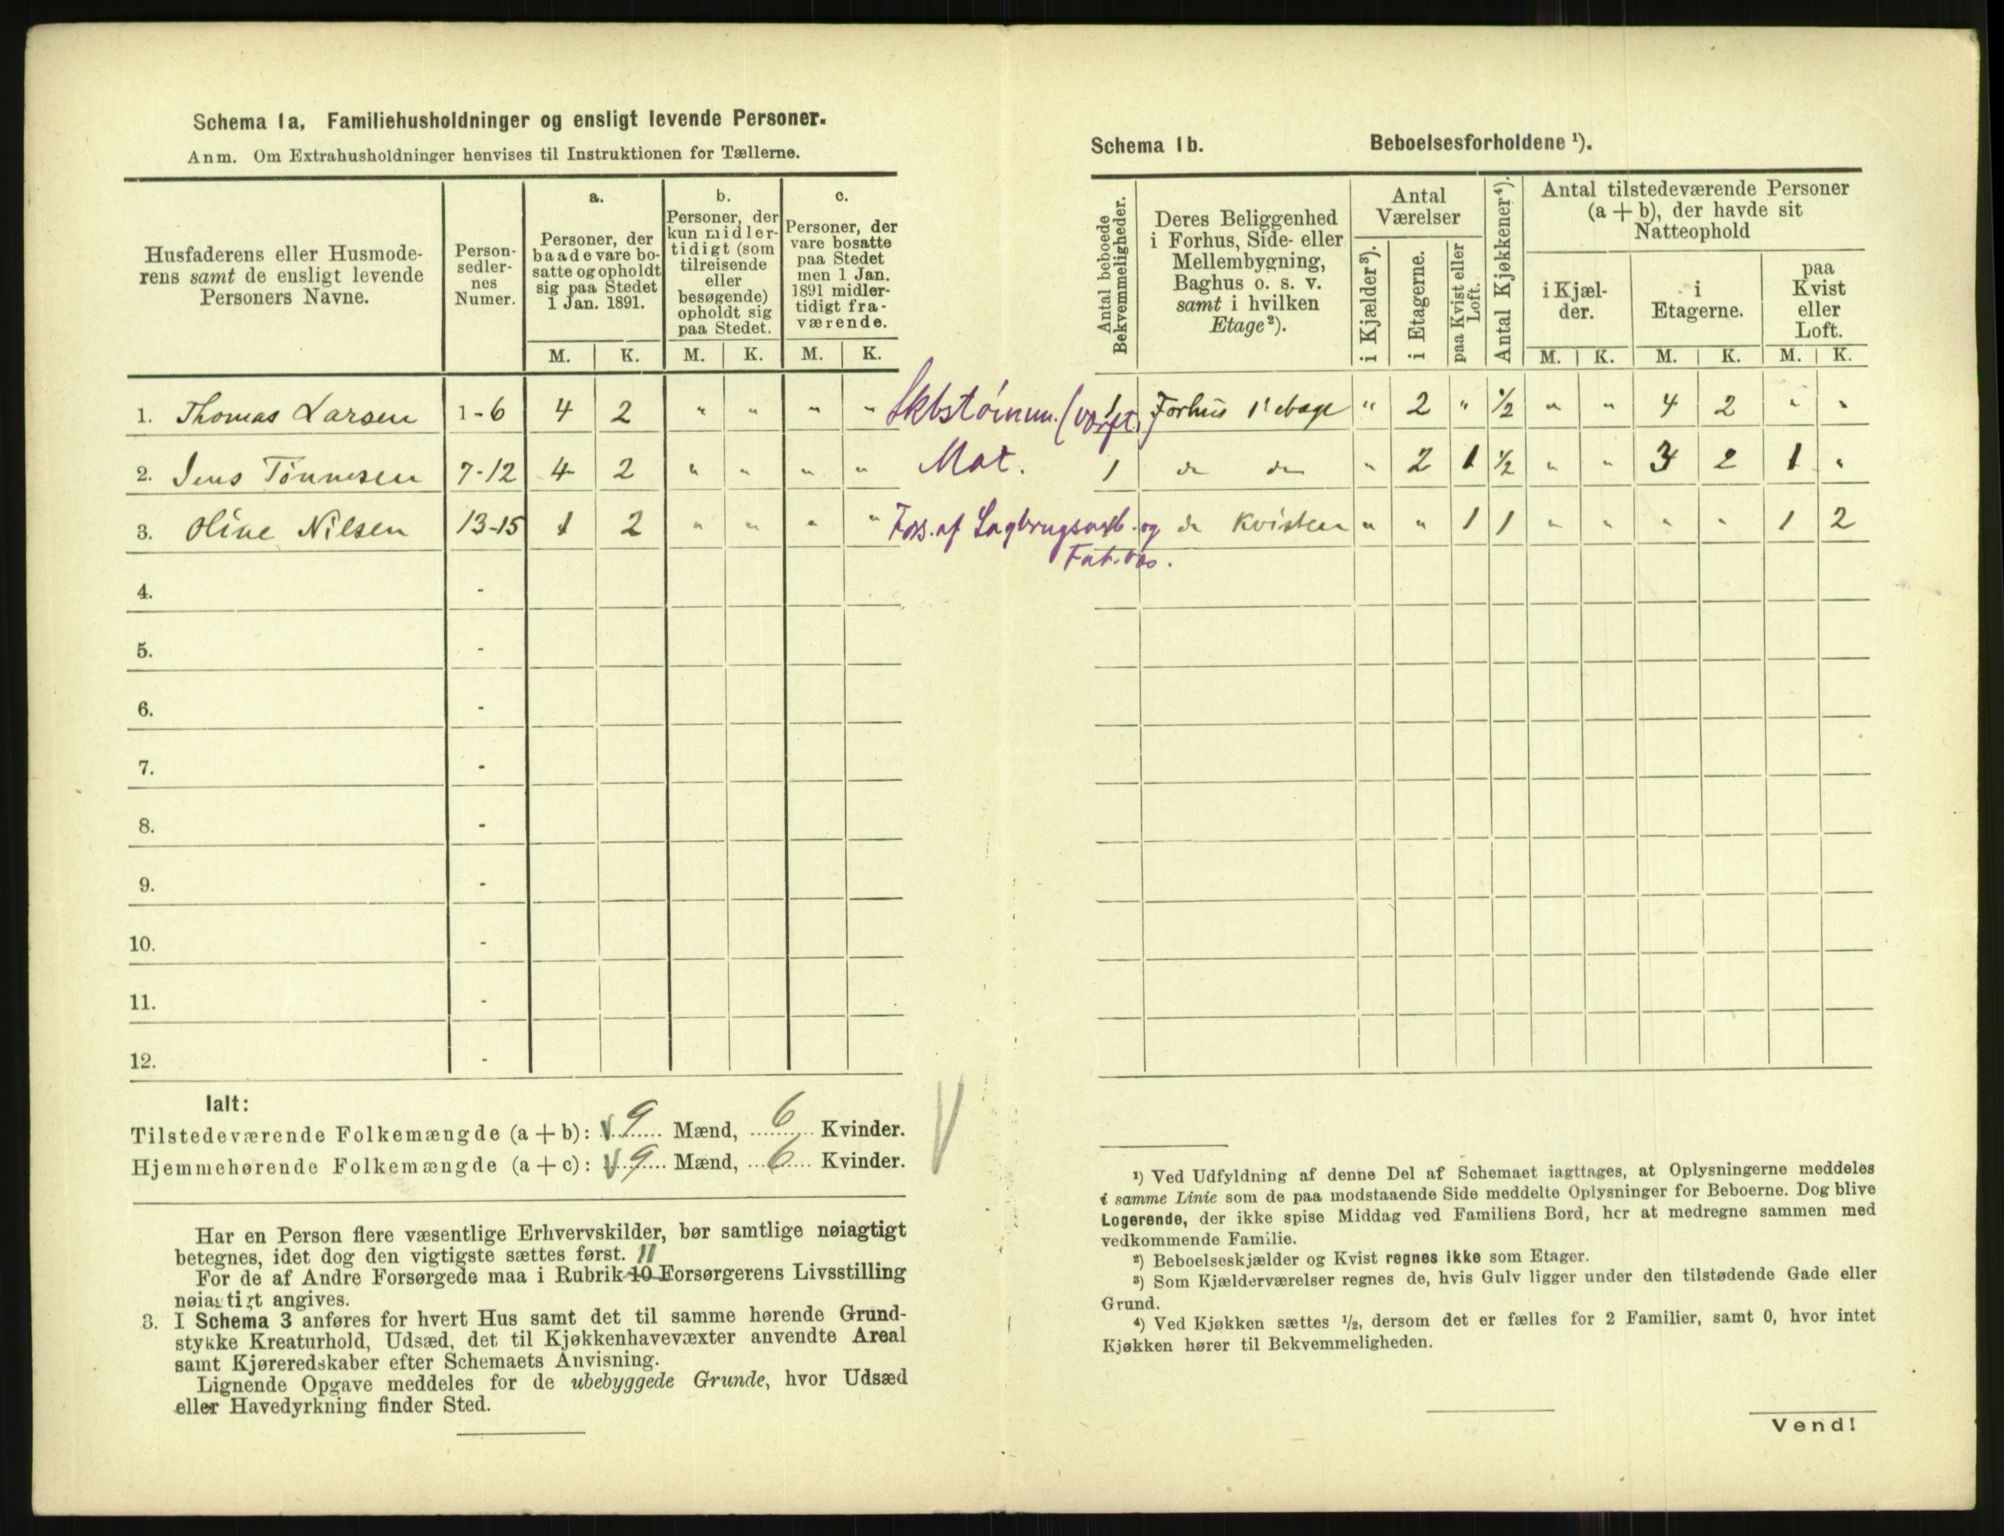 Schema 1a. Familiehusholdninger og ensligt levende Personer.
Anm. Om Extrahusholdninger henvises til Instruktionen for Tællerne.
Husfaderens eller Husmode-
rens samt de ensligt levende
Personers Navne.
Person-
sedler-
nes
Numer.
a.
Personer, der
baade vare bo-
satte og opholdt
sig paa Stedet
1 Jan. 1891.
b.
Personer, der
kun midler-
tidigt (som
tilreisende
eller
besøgende)
opholdt sig
paa Stedet.
c.
Personer, der
vare bosatte
paa Stedet
men 1 Jan.
1891 midler-
tidigt fra-
værende.
M. K. M. K. M. K.
1. Thomas Larsen 1-6 4 2 " " " "
2. Jens Tønnesen 7-12 4 2 " " " "
3. Oline Nilsen 13-15 1 2 " " " "
4. -
5. -
6. -
7. -
8. -
9. -
10. -
11. -
12. -
Ialt:
Tilstedeværende Folkemængde (a + b): 9 Mænd, 6 Kvinder.
Hjemmehørende Folkemængde (a + c): 9 Mænd, 6 Kvinder.
Har en Person flere væsentlige Erhvervskilder, bør samtlige nøiagtigt
betegnes, idet dog den vigtigste sættes først. 11
For de af Andre Forsørgede maa i Rubrik 10 Forsørgerens Livsstilling
nøiagtigt angives.
3. I Schema 3 anføres for hvert Hus samt det til samme hørende Grund-
stykke Kreaturhold, Udsæd, det til Kjøkkenhavevæxter anvendte Areal
samt Kjøreredskaber efter Schemaets Anvisning.
Lignende Opgave meddeles for de ubebyggede Grunde, hvor Udsæd
eller Havedyrkning finder Sted.
Schema 1b. Beboelsesforholdene ¹).
Antal beboede
Bekvemmeligheder.
Deres Beliggenhed
i Forhus, Side- eller
Mellembygning,
Baghus o. s. v.
samt i hvilken
Etage²).
Antal
Værelser
i Kjælder³).
i Etagerne.
paa Kvist eller
Loft.
Antal Kjøkkener⁴).
Antal tilstedeværende Personer
(a + b), der havde sit
Natteophold
i Kjæl-
der.
i
Etagerne.
paa
Kvist
eller
Loft.
M. K. M. K. M. K.
Skbstømm. (værft) 1 Forhus 1' etage " 2 " ½ " " 4 2 " "
Mat. 1 do do " 2 1 ½ " " 3 2 1 "
Fors. af Sagbrugsarb. og do Kvisten " " 1 1 " " " " 1 2
¹) Ved Udfyldning af denne Del af Schemaet iagttages, at Oplysningerne meddeles
i samme Linie som de paa modstaaende Side meddelte Oplysninger for Beboerne. Dog blive
Logerende, der ikke spise Middag ved Familiens Bord, her at medregne sammen med
vedkommende Familie.
²) Beboelseskjælder og Kvist regnes ikke som Etager.
³) Som Kjælderværelser regnes de, hvis Gulv ligger under den tilstødende Gade eller
Grund.
⁴) Ved Kjøkken sættes ½, dersom det er fælles for 2 Familier, samt 0, hvor intet
Kjøkken hører til Bekvemmeligheden.
Vend!